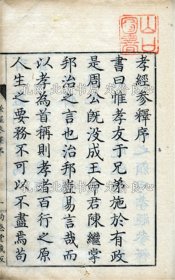 孝經參釋序
書曰惟孝友于兄弟施於有政
是周公既没成王命君陳繼掌
邦治之言也邦治豈易言哉而
以孝為首稱則孝者百行之原
人生之要務不可以不盡焉苟